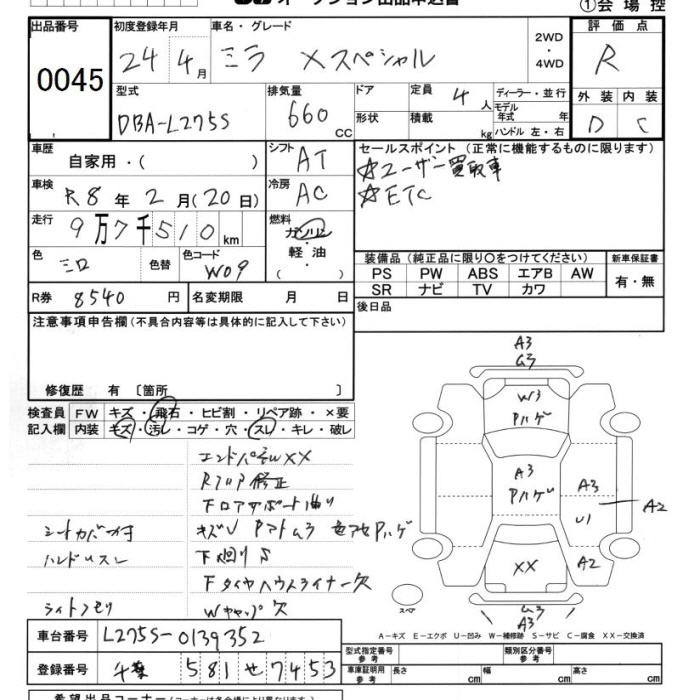 ①会場控
出品番号
0045
初度登録年月
24 4月
車名・グレード
ミラ Xスペシャル
2WD
・
4WD
評価点
R
外装 内装
D C
型式
DBA-L275S
排気量
660 CC
ドア
形状
定員 4人
積載 kg
ディーラー・並行
モデル年式 年
ハンドル 左・右
車歴
自家用・( )
シフト
AT
セールスポイント (正常に機能するものに限ります)
☆ユーザー買取車
☆ETC
車検
R8年2月(20日)
冷房
AC
走行
9万7千510km
燃料
ガソリン
軽油
( )
色
シロ
色替
色コード
W09
装備品 (純正品に限り○をつけてください)
新車保証書
PS PW ABS エアB AW
有・無
SR ナビ TV カワ
R券 8540円
名変期限 月 日
後日品
注意事項申告欄 (不具合内容等は具体的に記入して下さい)
修復歴 有 〔箇所 〕
検査員
記入欄
FW キズ・飛石・ヒビ割・リペア跡・×要
内装 キズ・汚レ・コゲ・穴・スレ・キレ・破レ
エンドパネルXX
修正
シートカバー付
ハンドルスレ
下タイヤハウスライナー欠
ライトクモリ
Wキャップ欠
A3
G3
W3
Pハゲ
A3
Pハゲ
A3
A2
U1
A2
XX
スペア
G3
A3
A-キズ E-エクボ U-凹み W-補修跡 S-サビ C-腐食 XX-交換済
車台番号
L275S-0139352
登録番号
千葉 581 せ 7453
型式指定番号
参考
類別区分番号
参考
車庫証明用
参考
長さ cm
幅 cm
高さ cm